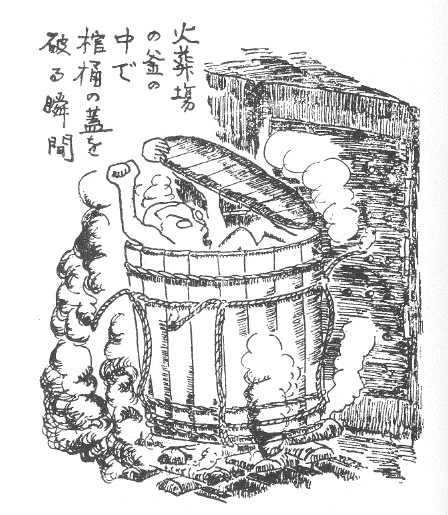 火葬場
の釜の
中で
棺桶の蓋を
破る瞬間